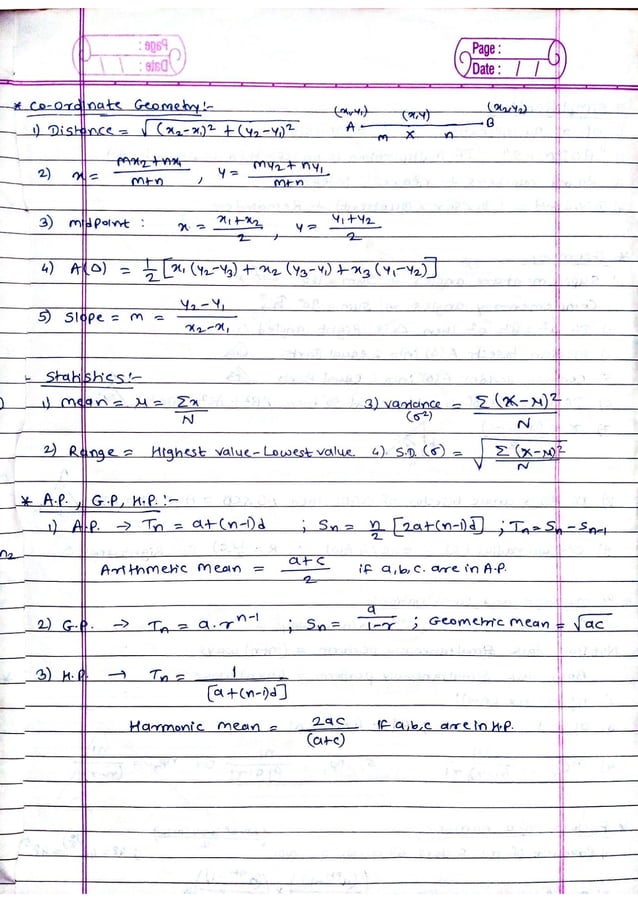 Page :
Date : / /
* Co-ordinate Geometry:-
(x₁,y₁) (x,y) (x₂,y₂)
A B
m X n
1) Distance = √(x₂-x₁)² + (y₂-y₁)²
2) x = mx₂+nx₁/m+n , y = my₂+ny₁/m+n
3) midpoint : x = x₁+x₂/2 , y = y₁+y₂/2
4) A(Δ) = 1/2 [x₁(y₂-y₃) + x₂(y₃-y₁) + x₃(y₁-y₂)]
5) Slope = m = y₂-y₁/x₂-x₁
- Statistics:-
1) mean = μ = Σx/N 3) variance (σ²) = Σ(x-μ)²/N
2) Range = Highest value - Lowest value 4) S.D.(σ) = √Σ(x-μ)²/N
* A.P., G.P, H.P.:-
1) A.P. → Tn = a+(n-1)d ; Sn = n/2 [2a+(n-1)d] ; Tn = Sn - Sn-1
Arithmetic mean = a+c/2 if a,b,c. are in A.P.
2) G.P. → Tn = a.r^n-1 ; Sn = a/1-r ; Geometric mean = √ac
3) H.P. → Tn = 1/[a+(n-1)d]
Harmonic mean = 2ac/(a+c) If a,b,c are in H.P.